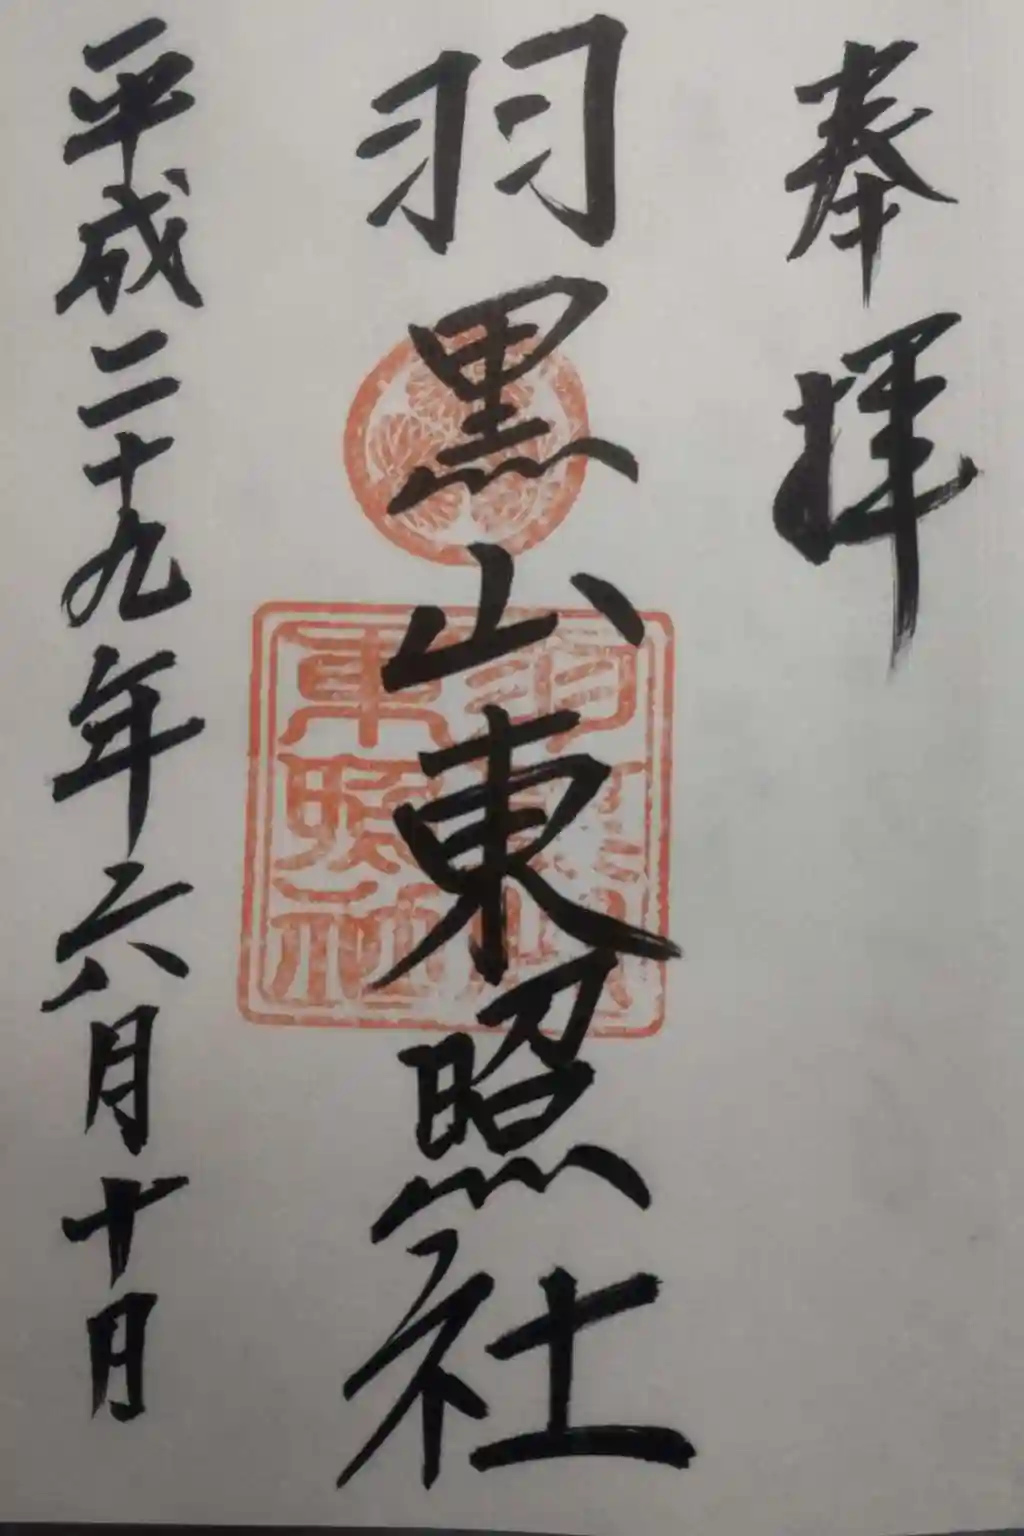 奉拝
羽黒山東照社
東照社
平成二十九年六月十日